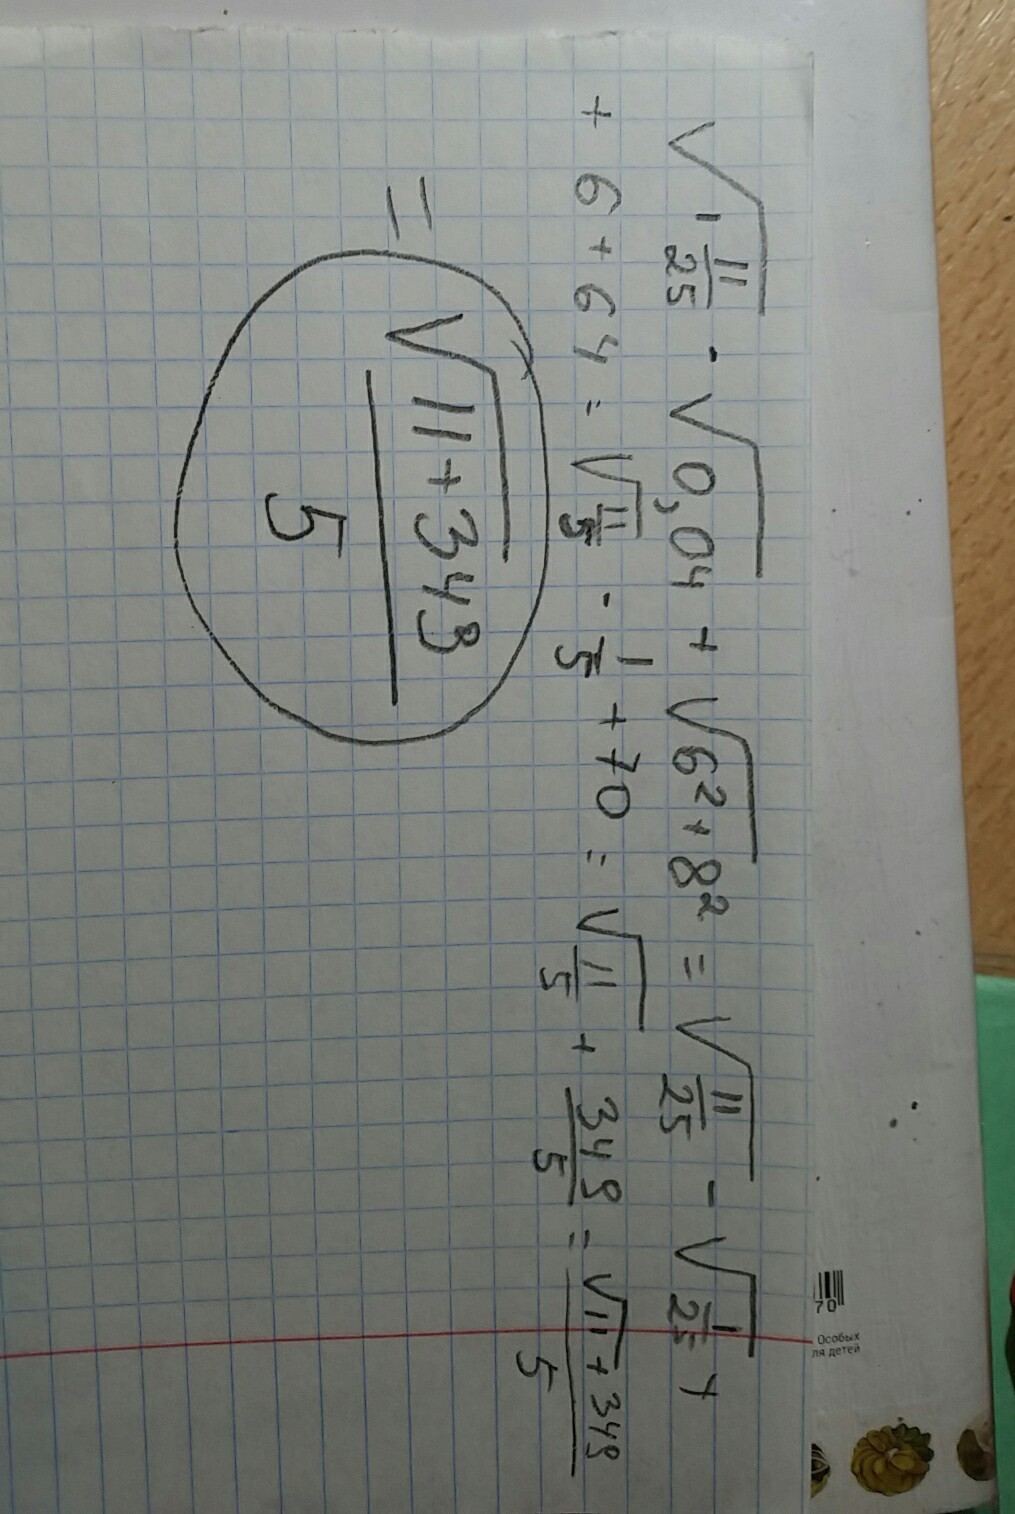 √(1 11/25) - √0,04 + √(6² + 8²) = √(11/25) - √(1/25) +
+ 6 + 64 = √(11/5) - 1/5 + 70 = √(11/5) + 349/5 = (√11 + 349)/5
= √(11 + 349)/5
70
Особых
ля детей